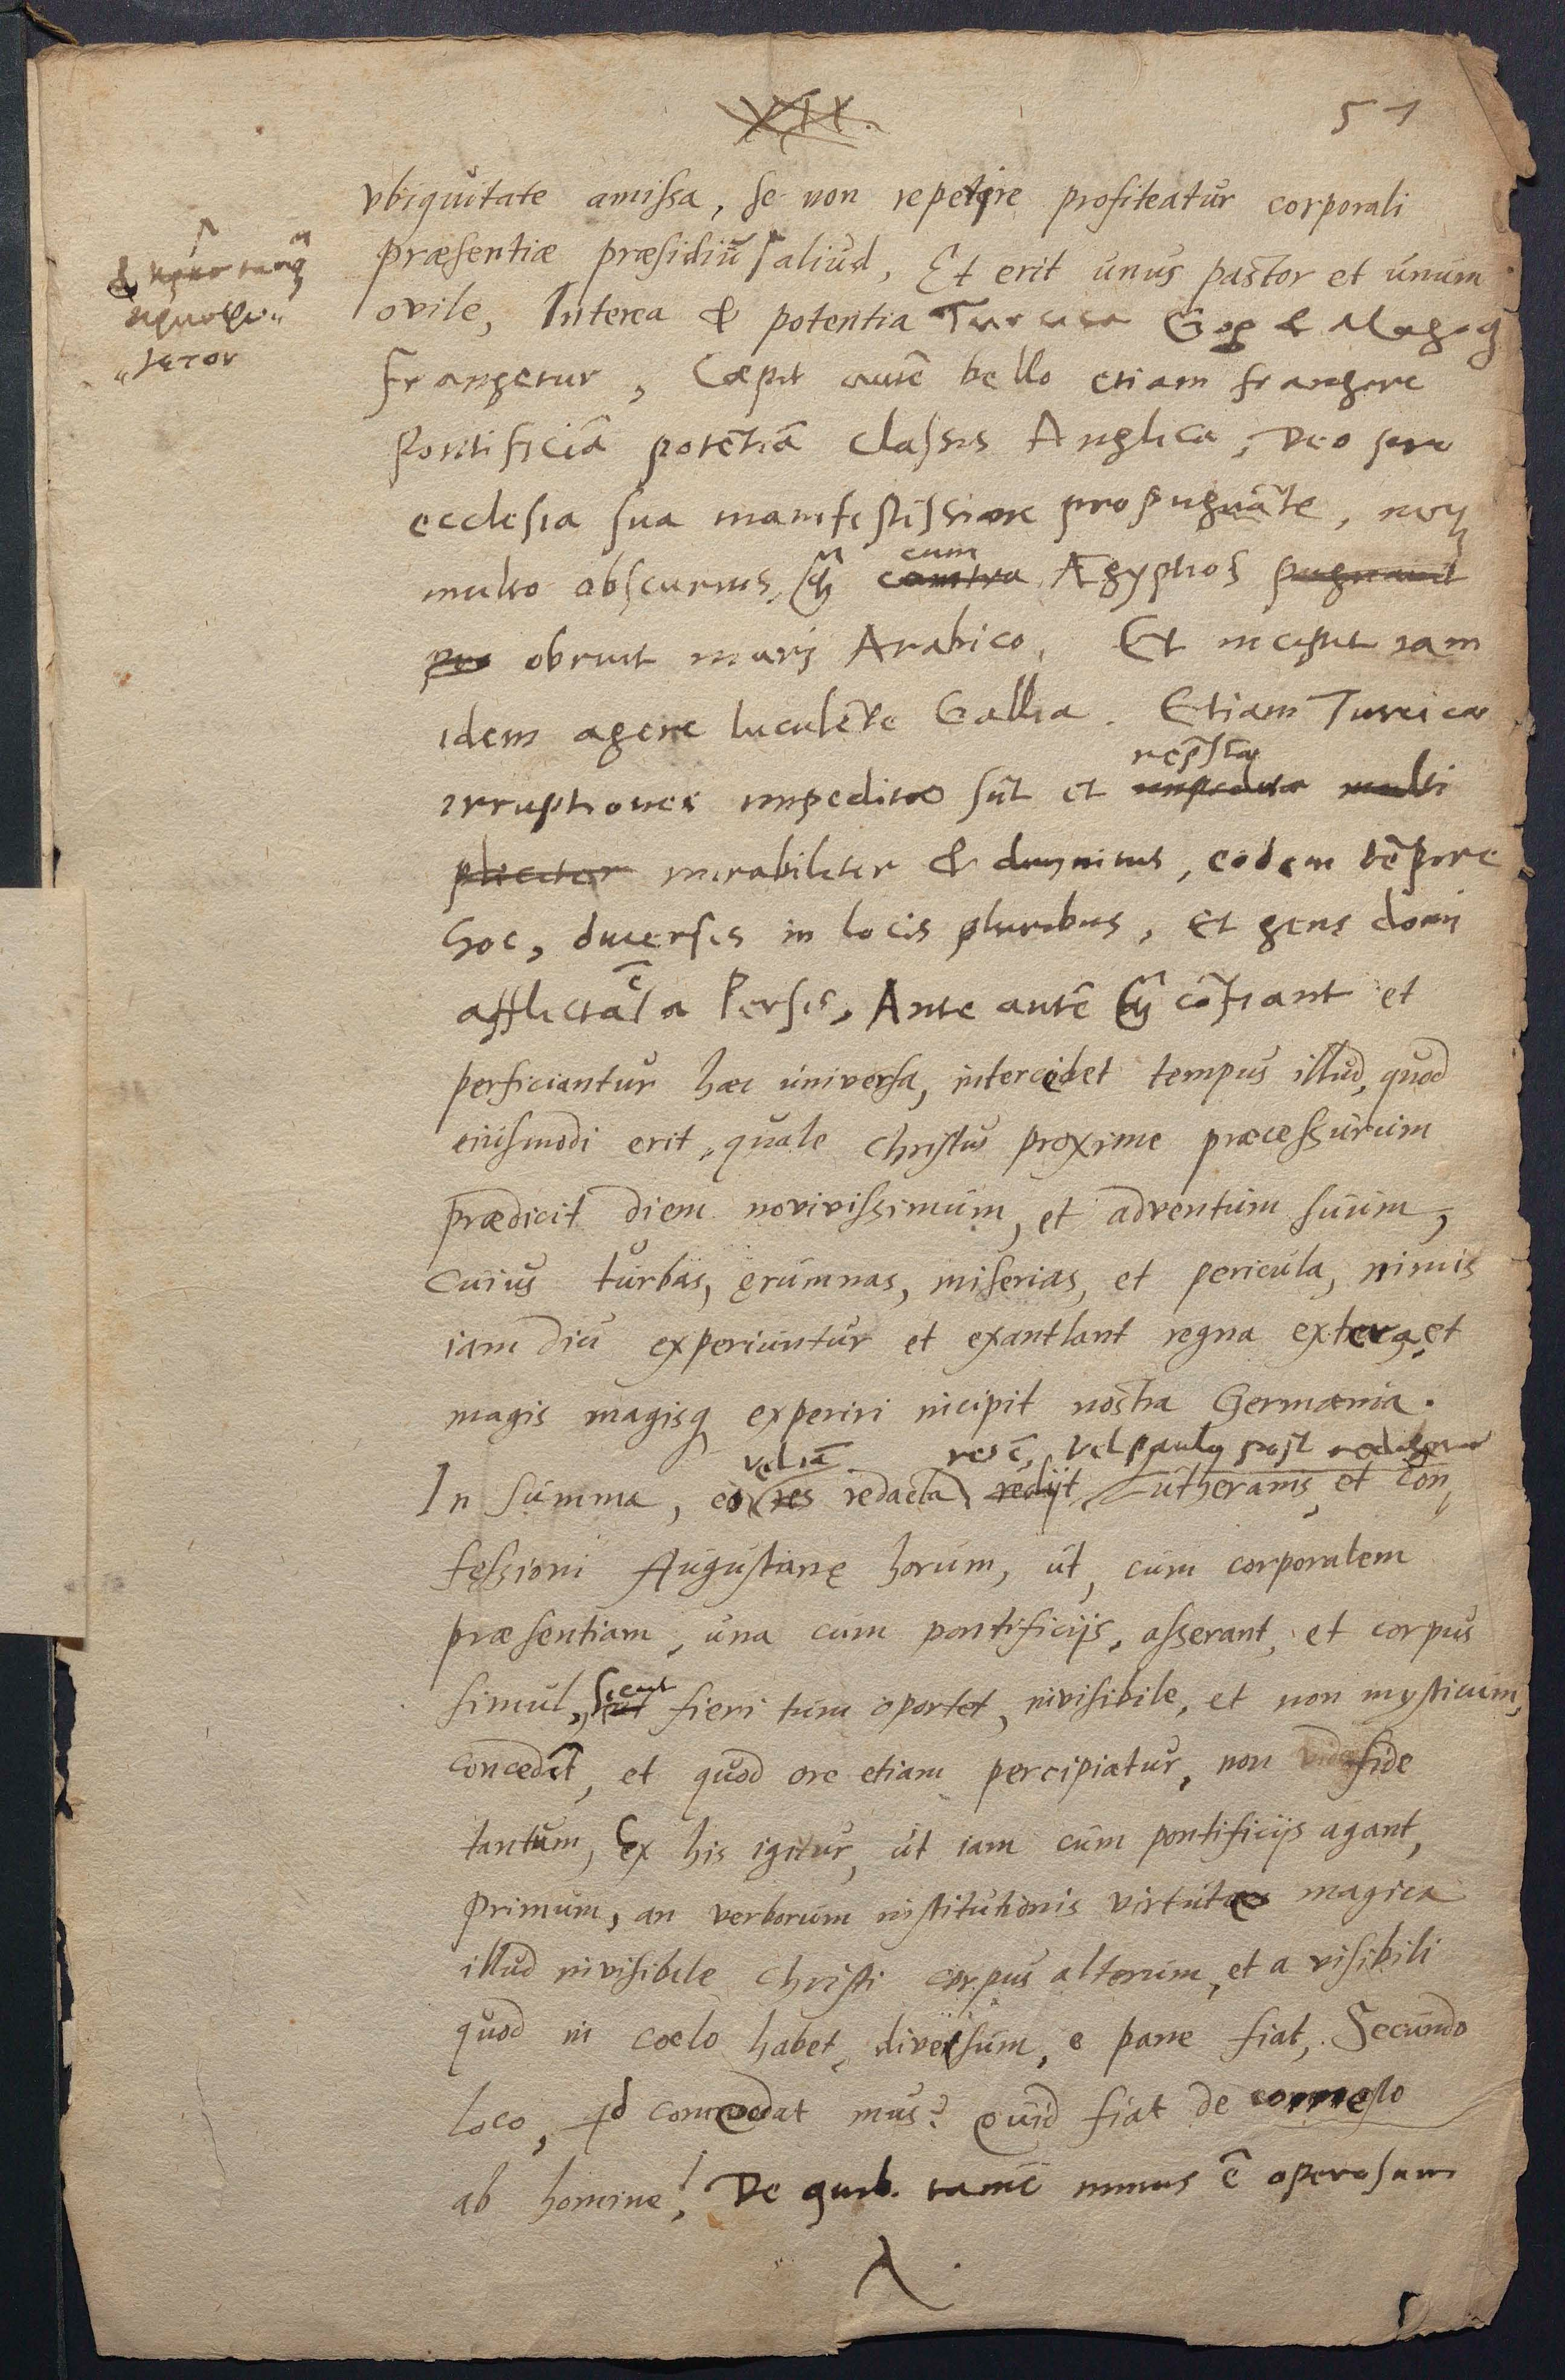 XII.
51
vbiquitate amissa, se non repetere profiteatur corporali
præsentiæ præsidiũ aliud, Et erit unus pastor et unum
ovile, Interea & potentia Turcica Gog & Magog
frangetur, Cœpit autẽ bello etiam frangere
Pontificiã potẽtiã classis Anglica, Deo pro
ecclesia sua manifestissime propugnãte, non
multo obscurius, q̃ contra cum Ægyptios pugnavit
pro obruit mari Arabico. Et incipit iam
idem agere luculẽte Gallia. Etiam Turcicæ
irruptiones impeditæ sũt et repr̃ssæ impeditæ multi
pliciter mirabiliter & divinitus, eodem tẽpore
hoc, diversis in locis pluribus, et gens domi
afflictata ẽ a Persis, Ante autẽ q̃ cõfiant et
perficiantur hæc universa, intercedet tempus illud, quod
eiusmodi erit, quale Christus proxime præcessurum
prædicit diem novivissimum, et adventum suum,
cuius turbas, ęrumnas, miserias, et pericula, nimis
iam diu experiuntur et exantlant regna extera, et
magis magisq experiri incipit nostra Germania.
vel iã res ẽ, vel paulo post
In summa, eo res redacta redijt Lutheranis, et con„
fęssioni Augustanę horum, ut, cum corporalem
præsentiam, una cum pontificijs, asserant, et corpus
simul, sicut fieri tum oportet, invisibile, et non mysticum,
concedãt, et quod ore etiam percipiatur, non fide
tantum, Ex his igitur, ut iam cum pontificijs agant,
primum, an verborum institutionis virtute magica
illud invisibile Christi corpus alterum, et a visibili
quod in coelo habet, diversum, e pane fiat, Secundo
loco, qd comedat mus? Quid fiat de comesto
ab homine! De quib. tamẽ minus ẽ operosum